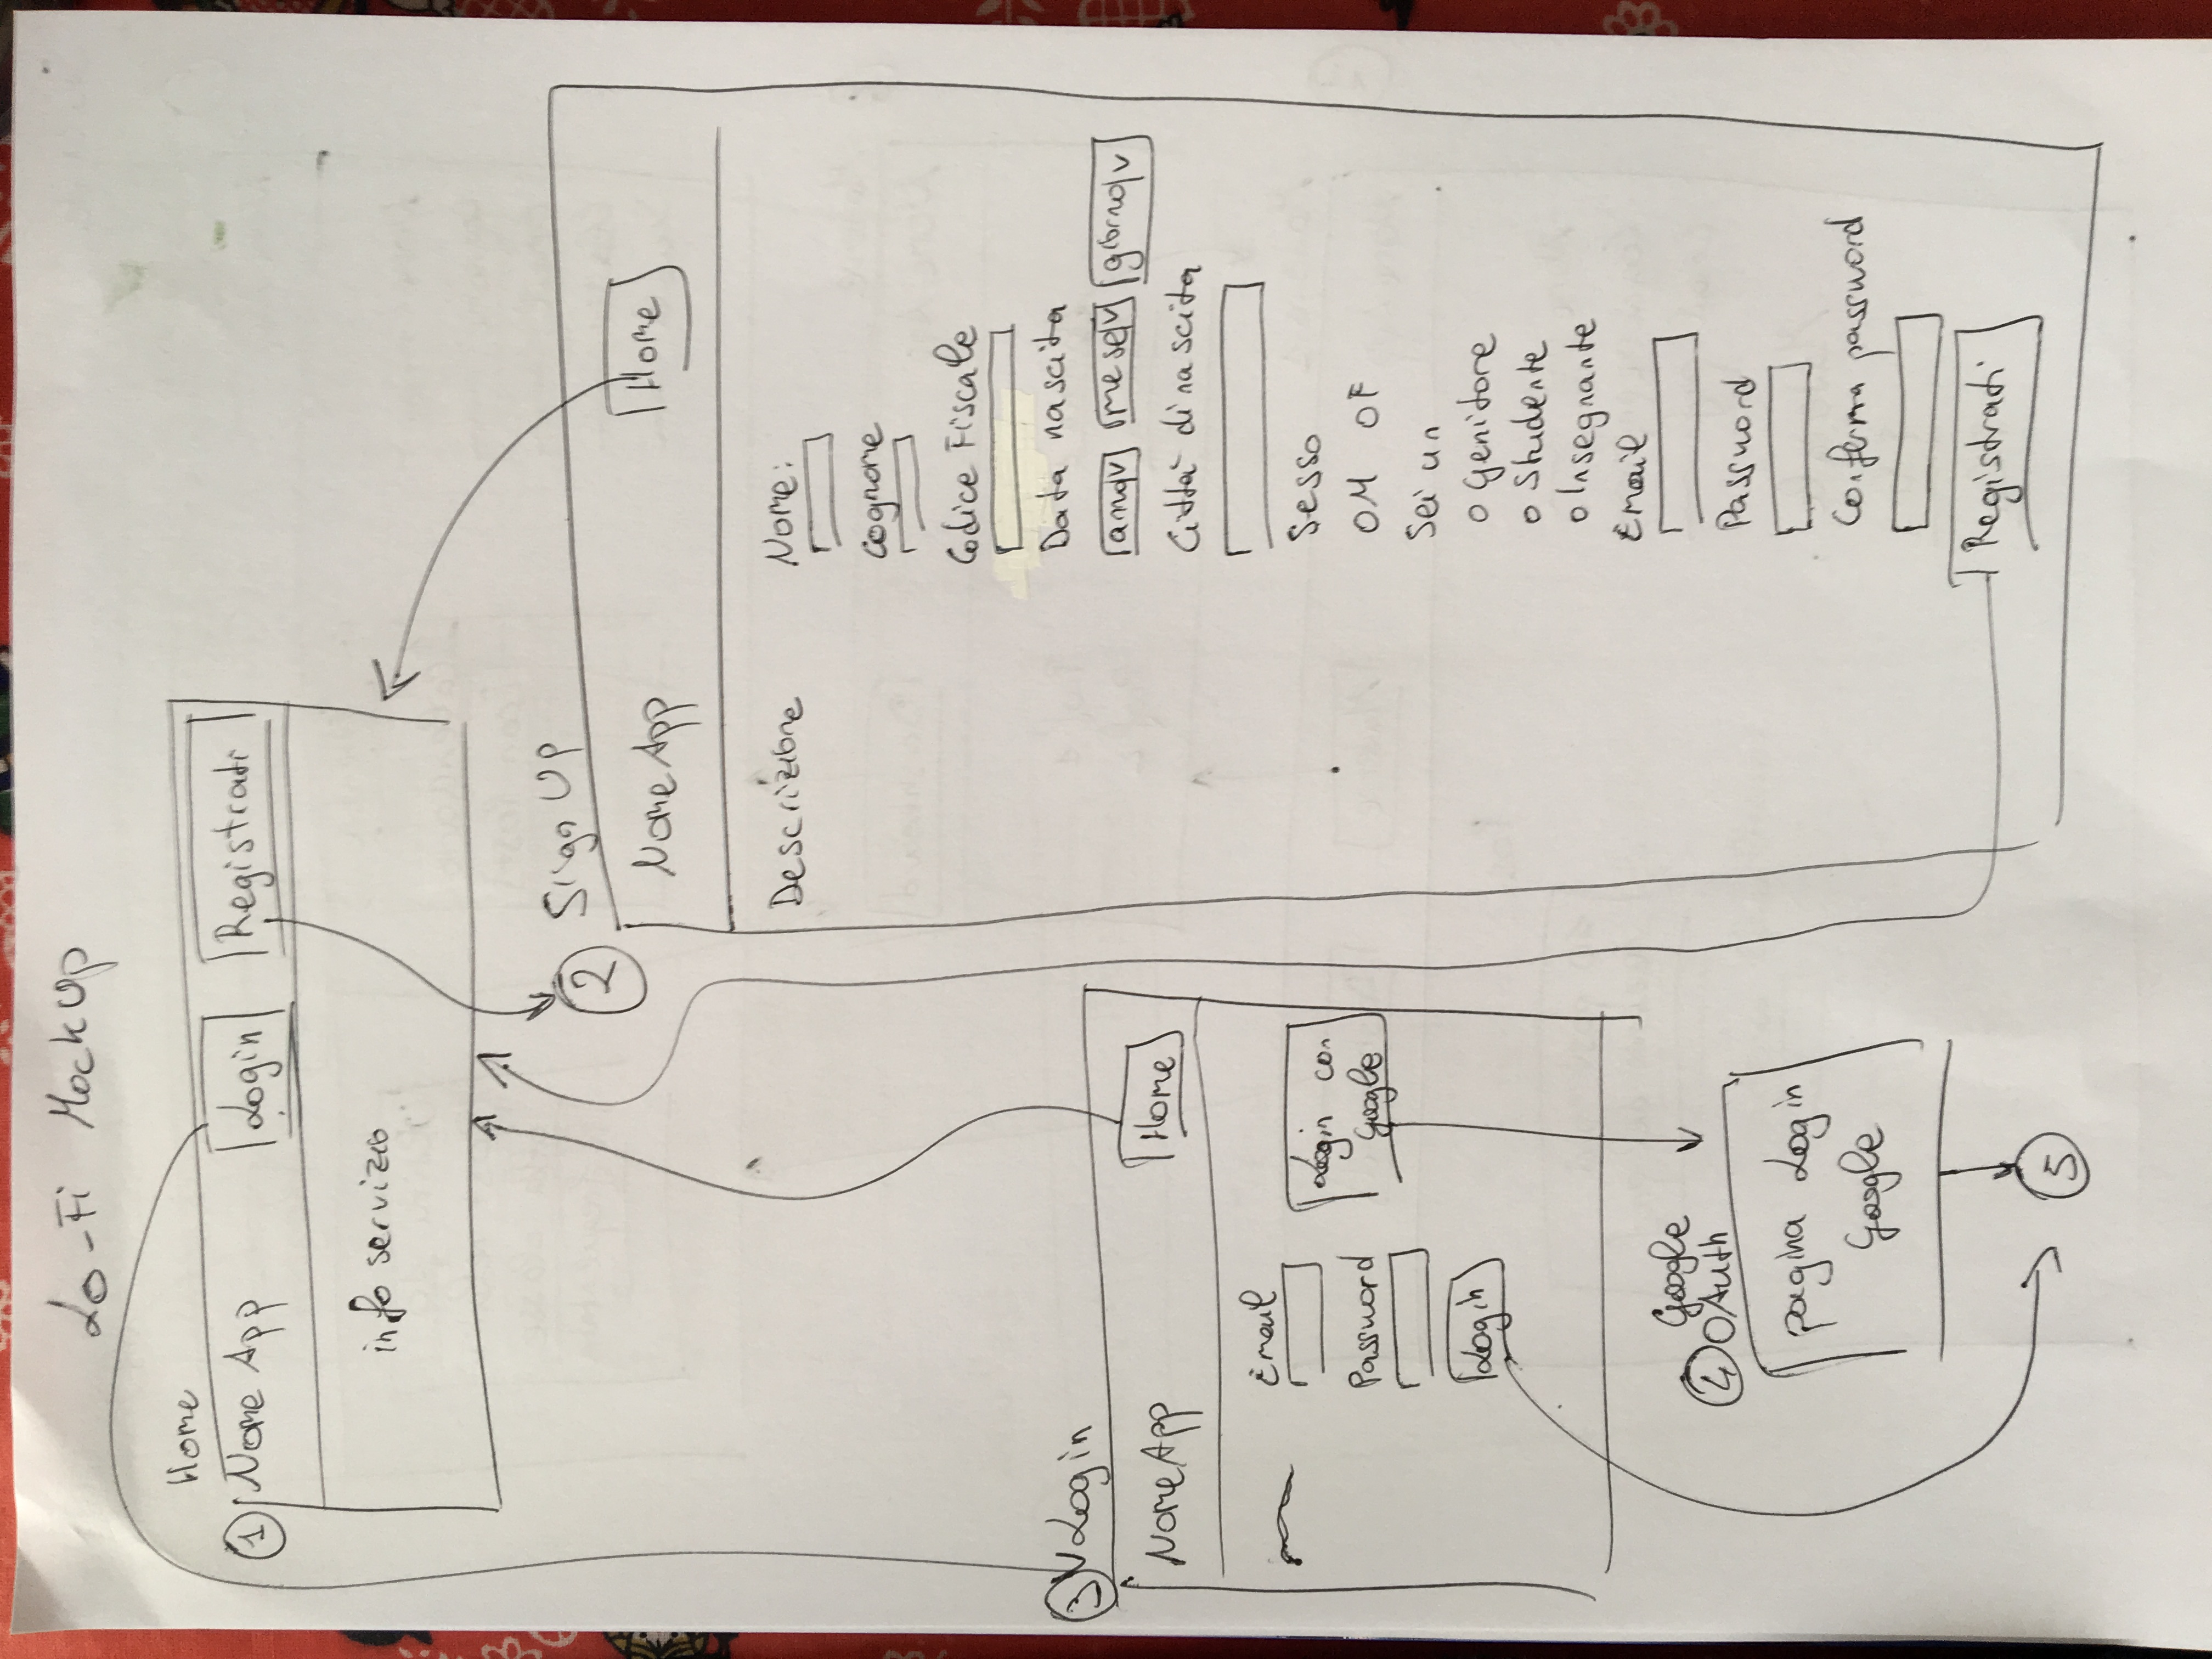 Lo-Fi MockUp
Home
1
Nome App Login Registrati
info servizio
2
Sign Up
Nome App Home
Descrizione
Nome:
Cognome
Codice Fiscale
Data nascita
anno mese giorno
Città di nascita
Sesso
M F
Sei un
Genitore
Studente
Insegnante
Email
Password
Conferma password
Registrati
3 Login
Nome App Home
Email
Password
Login
Login con
Google
Google
4 OAuth
pagina Login
Google
5